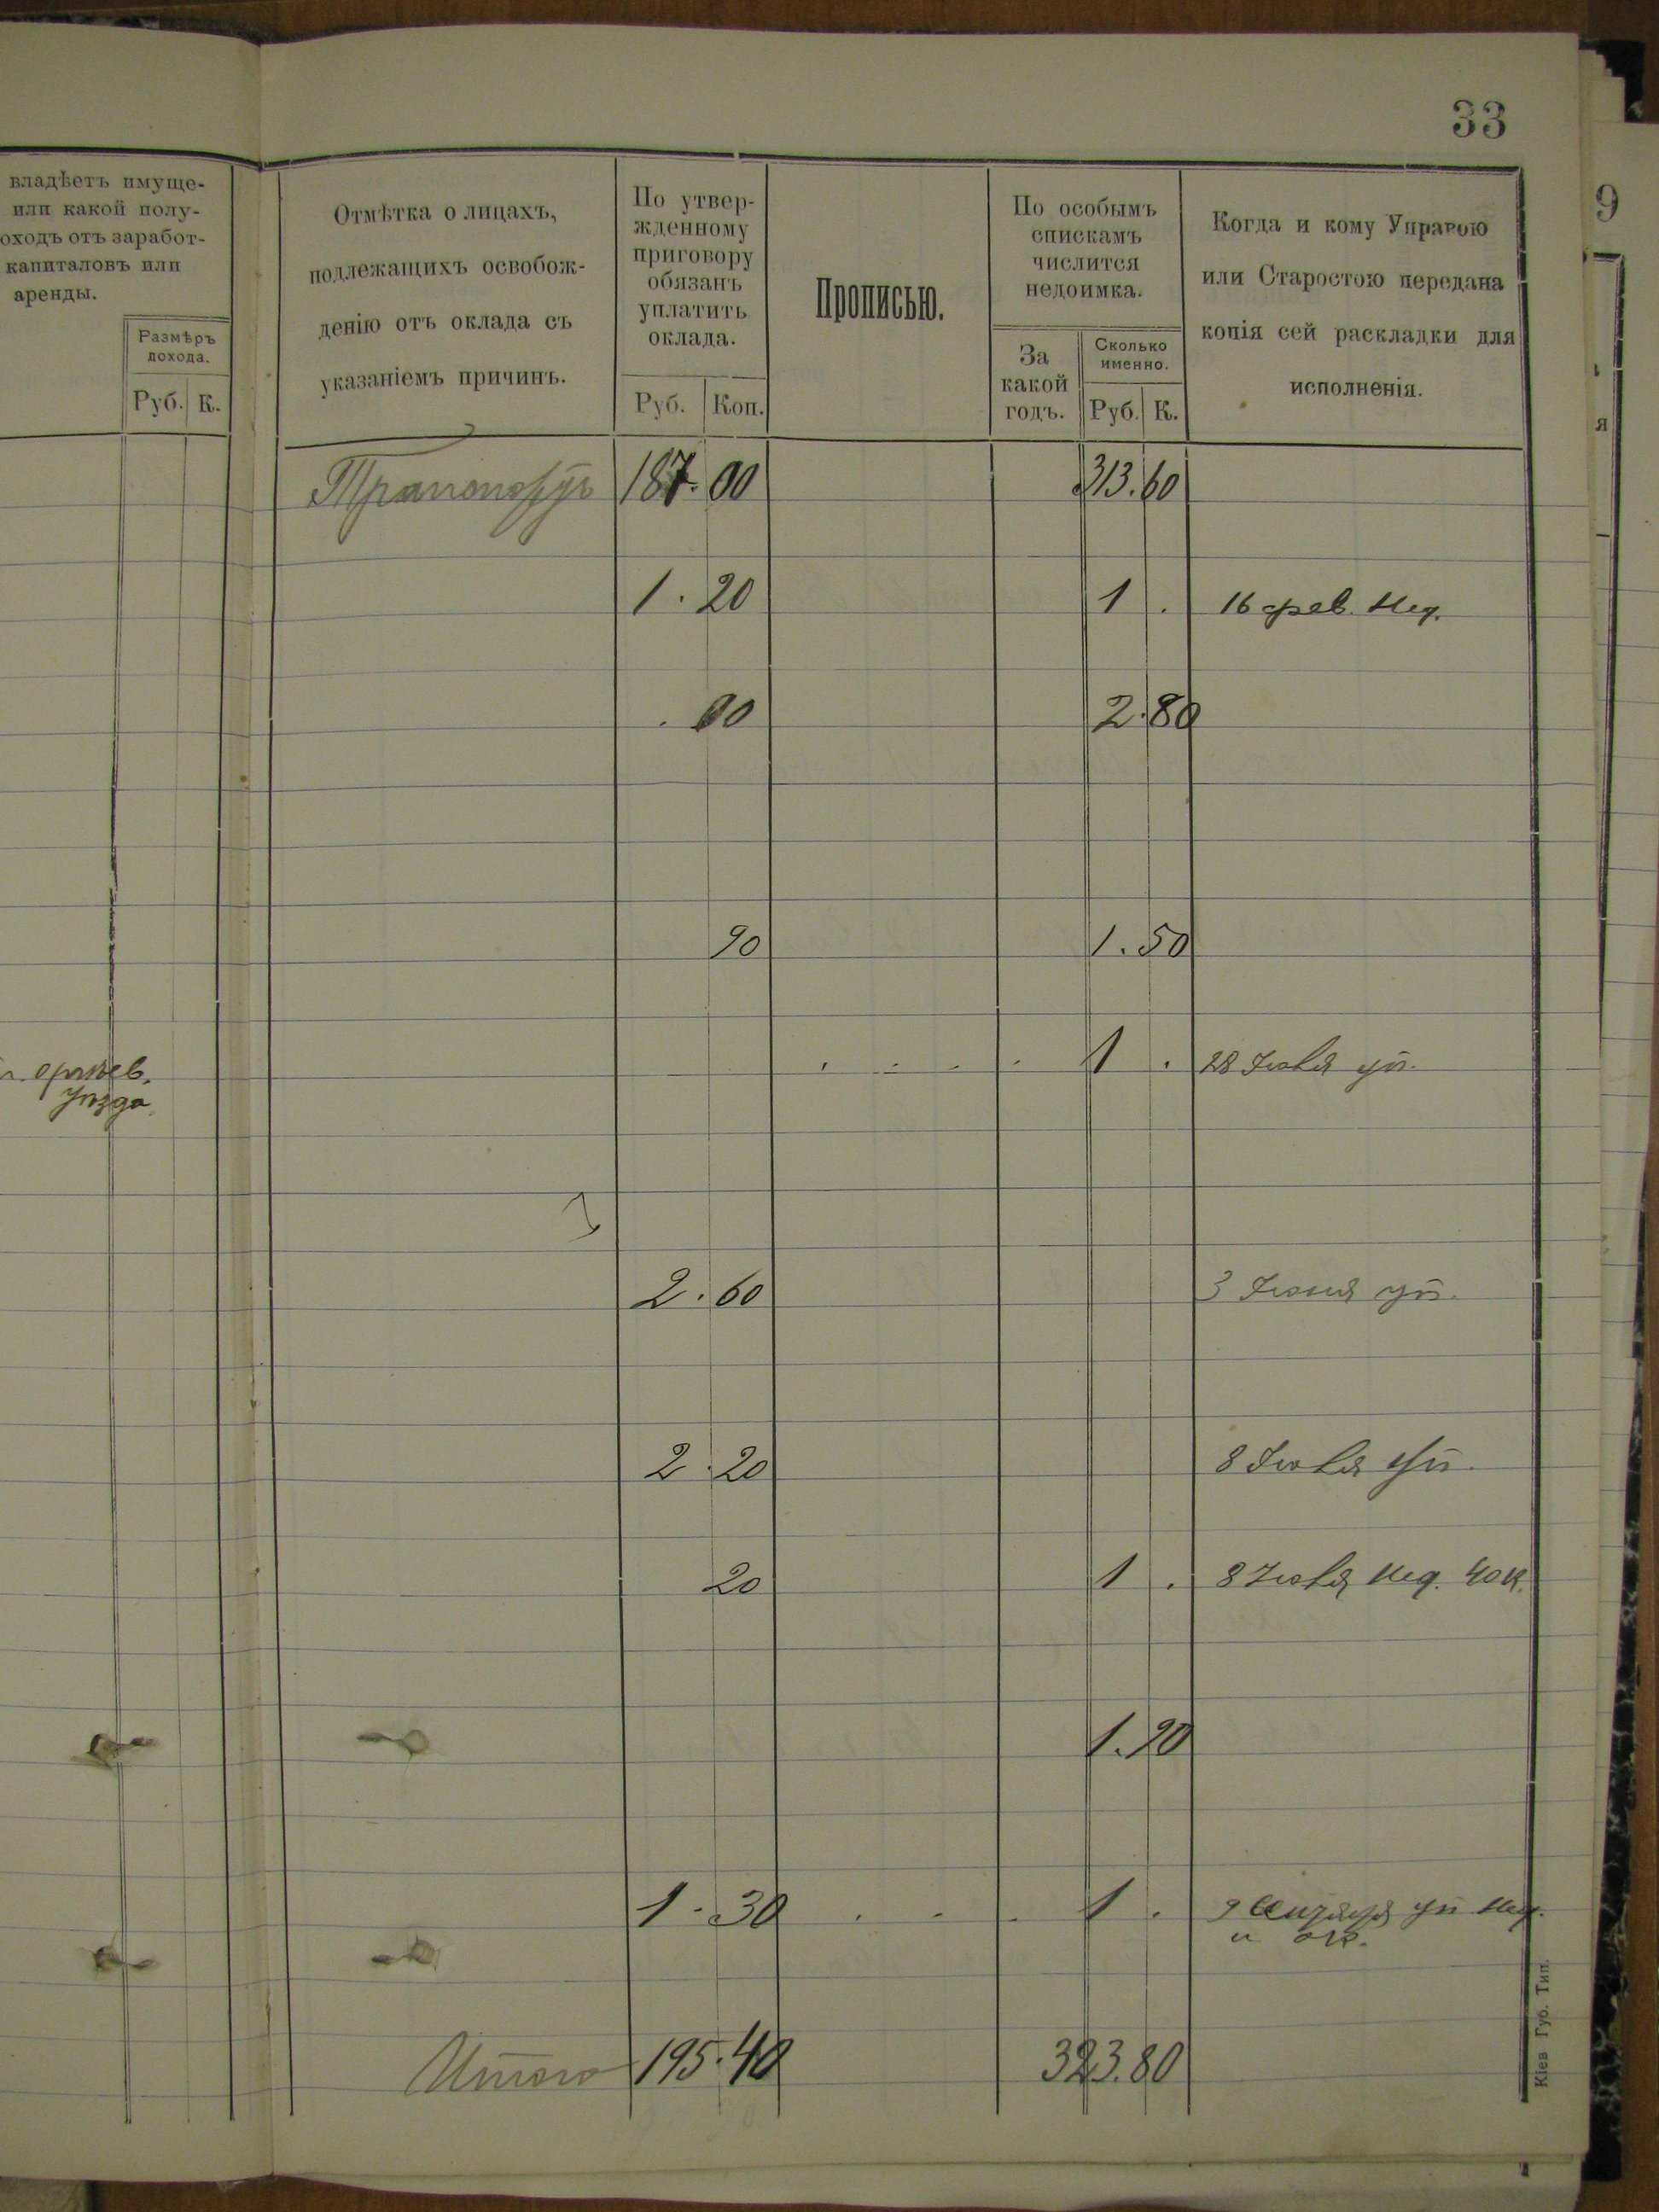 33
владѣетъ имуще-
или какой полу-
оходъ отъ заработ-
капиталовъ или
аренды.
Размѣръ
дохода.
Руб. К.
Отмѣтка о лицахъ,
подлежащихъ освобож-
денію отъ оклада съ
указаніемъ причинъ.
По утвер-
жденному
приговору
обязанъ
уплатить
оклада.
Руб. Коп.
Прописью.
По особымъ
спискамъ
числится
недоимка.
За
какой
годъ.
Сколько
именно.
Руб. К.
Когда и кому Управою
или Старостою передана
копія сей раскладки для
исполненія.
9
я
Транспортъ 187.00 313.60
1.20 1. 16 фев. Нед.
2.80
90 1.50
1. 28 Іюля уп.
уѣзда
2.60 3 Іюня уп.
2.20 8 Іюля уп.
20 1. 8 Іюля Нед. 40 к.
1.90
1.30 1. 9 уп Нед.
и ок.
Итого 195.40 323.80
Кіев Губ. Тип.